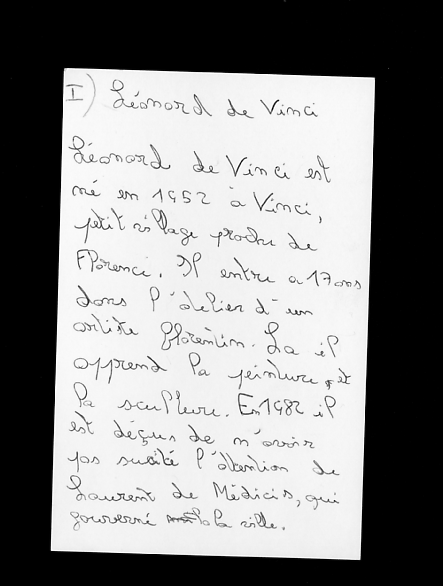 I) Léonard de Vinci
Léonard de Vinci est
né en 1452 à Vinci,
petit village proche de
Florence. Il entre a 17 ans
dans l'atelier d'un
artiste florentin. La il
apprend la peinture et
la sculture. En 1482 il
est déçus de n'avoir
pas sucité l'attention de
Laurent de Médicis, qui
gouverné la ville.